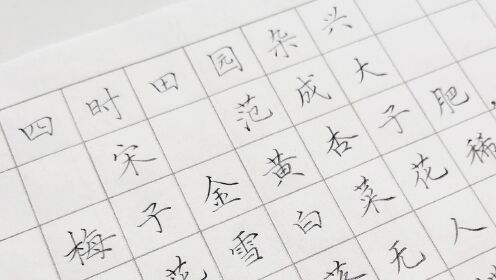 四时田园杂兴
宋 范成大
梅子金黄杏子肥
花雪白菜花稀
落无人